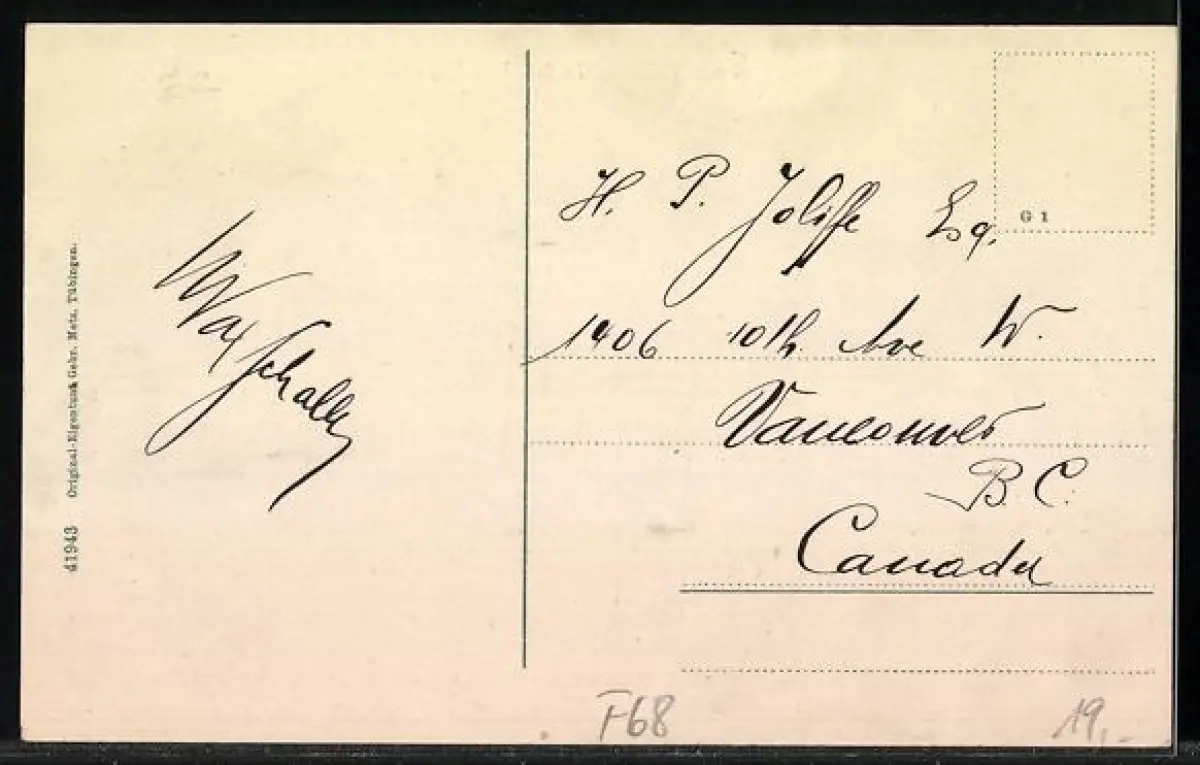 41943 Original-Eigentum Gebr. Metz, Tübingen.
Max Schaller
H. P. Joliffe Esq.
G 1
1406 10th. Ave W.
Vancouver
B. C.
Canada
F68
19,-